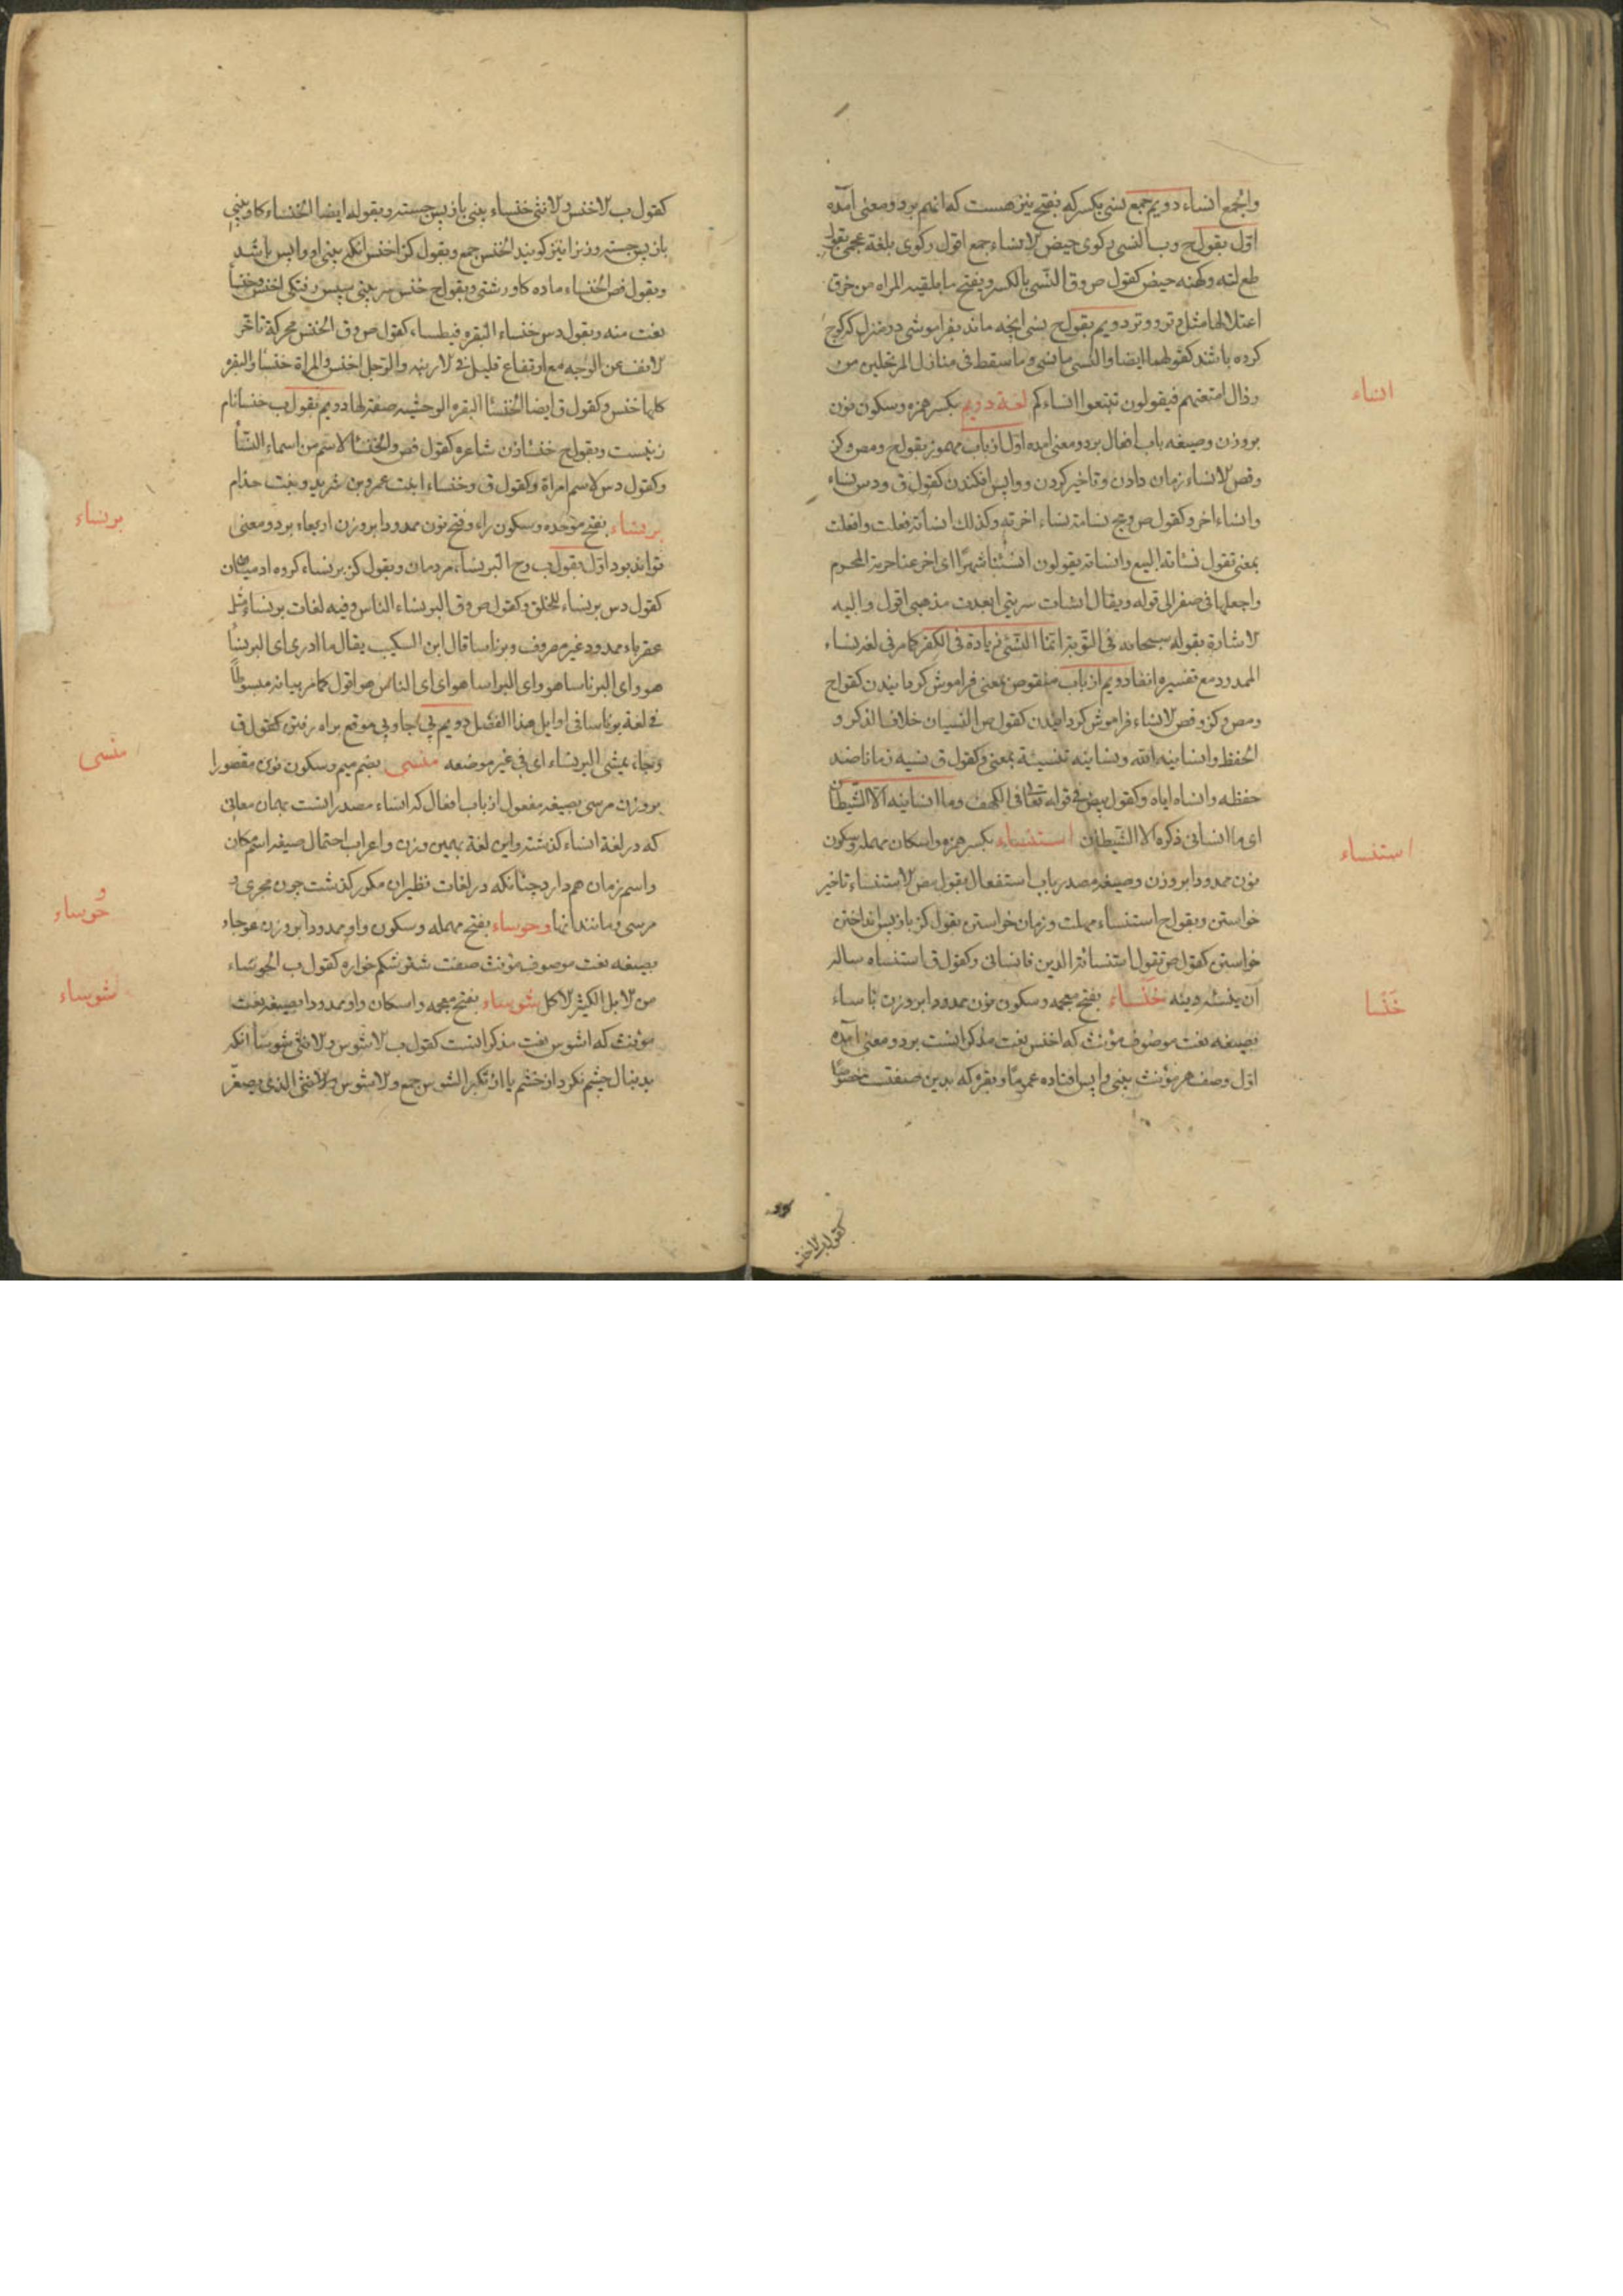 والجمع انساء دویم جمع نسی بکسر که بفتح نیز هست که انهم بردو معنی آمده
اوّل بقول ح و ب النسی رکوی حیض الانساء جمع اقول رکوی بلغة عجمی بقول
طع لته وکهنه حیض کقول ص و ق النّسی بالکسر ویفتح ما یلقیه المراه من خرق
اعتلالها مثل وتر ووتر دویم بقول ح نسی انچه ماند بفراموشی در منزل که کوچ
کرده باشند کقولهما ایضا والنسی ما نسی وما سقط فی منازل المرتحلین من
رذال امتعتهم فیقولون تتبعوا انساءکم لغة دویم بکسر همزه وسکون نون
بروزن وصیغه باب افعال بردو معنی امده اوّل از باب مهموز بقول ح ومص وکز
وفص الانساء زمان دادن وتاخیر کردن وواپس افکندن کقول ق ودس نساء
وانساء اخر وکقول ص ومج نسامة نساء اخرته وکذلک انساته فعلت وافعلت
بمعنی تقول نساته البیع وانساته یقولون انسئنا شهرًا ای اخر عنا حرمة المحرم
واجعلها فی صفر الی قوله ویقال انشات سربتی ابعدت مذهبی اقول والیه
الاشارة بقوله سبحانه فی التّوبة انّما النّسئی زیادة فی الکفر کما مر فی لغة نساء
الممدود مع تفسیره انفا دویم از باب منقوص بمعنی فراموش کردانیدن کقول ح
ومص وکز وفص الانساء فراموش کردانیدن کقول ص النسیان خلاف الذکر و
الحفظ وانسانیه الله ونسانیه تنسیة بمعنی وکقول ق نسیه نسیانا ضد
حفظه وانساه ایاه وکقول بیض فی قوله تعالی فی الکهف وما انسانیه الا الشّیطان
ای ما انسانی ذکره الا الشّیطان استنساء بکسر همزه واسکان مهمله وسکون
نون ممدودا بروزن وصیغه مصدر باب استفعال بقول مص الاستنساء تاخیر
خواستن وبقول ح استنساء مهلت وزمان خواستن بقول کز باز پس انداختن
خواستن کقول ص تقول استنساته الدین فانسانی وکقول ق استنساه ساله
آن ینسئه دینه خنساء بفتح معجمه وسکون نون ممدودا بروزن باساء
بصیغه نعت موصوف مؤنث که اخنس نعت مذکر انست بردو معنی آمده
اوّل وصف هر مؤنث بینی واپس افتاده عمومًا وبقره که بدین صفتست خصوصًا
انساء
استنساء
خَنْسا
کقول ب الاخنس
کقول ب الاخنس والانثی خنساء بینی باز پس جسته وبقوله ایضا الخنساء کاو بینی
باز پس جسته وزنرا نیز کویند الخنس جمع وبقول کز اخنس انکه بینی او واپس باشد
وبقول فص الخنساء ماده کاو رشتی وبقول ح خنس سر بینی سپس رفتکی اخنس وخنسا
نعت منه وبقول دس خنساء البقره فیطساء کقول ص و ق الخنس محرکة تاخّر
الانف عن الوجه مع ارتفاع قلیل فی الارنبه والرّجل اخنس والمراة خنسا والبقر
کلها خنس وکقول ق ایضا الخنسا البقره الوحشیه صفة لها دویم بقول ب خنسا نام
زنیست وبقول ح خنسا زن شاعره کقول فص والخنسا الاسم من اسماء النّسا
وکقول دس الاسم امراة وکقول ق وخنساء ابنت عمرو بن شرید وبنت حذام
برنساء بفتح موحده وسکون راء وفتح نون ممدودا بروزن اربعاء بردو معنی
تواند بود اوّل بقول ب وح البرنساء مردمان وبقول کز برنساء کروه ادمیان
کقول دس برنساء للخلق وکقول ص و ق البرنساء الناس وفیه لغات برنساء مثل
عقرباء ممدود غیر مصروف وبرناسا قال ابن السکیت یقال ما ادری ای البرنسا
هو وای البرناسا هو وای البراسا هو ای ای الناس هو اقول کما مر بیانه مبسوطًا
فی لغة برناسا فی اوایل هذا الفصل دویم بی جا وبی موقع براه رفتن کقول ق
وجاء یمشی البرنساء ای فی غیر موضعه منسی بضم میم وسکون نون مقصورا
بروزن مرسی بصیغه مفعول از باب افعال که انساء مصدر انست بهمان معانی
که در لغة انساء کذشته واین لغة بهمین وزن واعراب احتمال صیغه اسم مکان
واسم زمان هم دارد چنانکه در لغات نظیران مکرر کذشت چون مجری و
مرسی ومانند انها وحوساء بفتح مهمله وسکون واو ممدودا بروزن عوجاء
بصیغه نعت موصوف مؤنث صفت شتر شکم خواره کقول ب الحوساء
من الابل الکثیر الاکل شوساء بفتح معجمه واسکان واو ممدودا بصیغه نعت
مؤنث که اشوس نعت مذکر انست کقول ب الاشوس والانثی شوسا انکه
بدنبال چشم نکرد از خشم یا از تکبر الشوس جمع والاشوس والانثی الذی یصغّر
برنساء
منسی
حوساء
شوساء